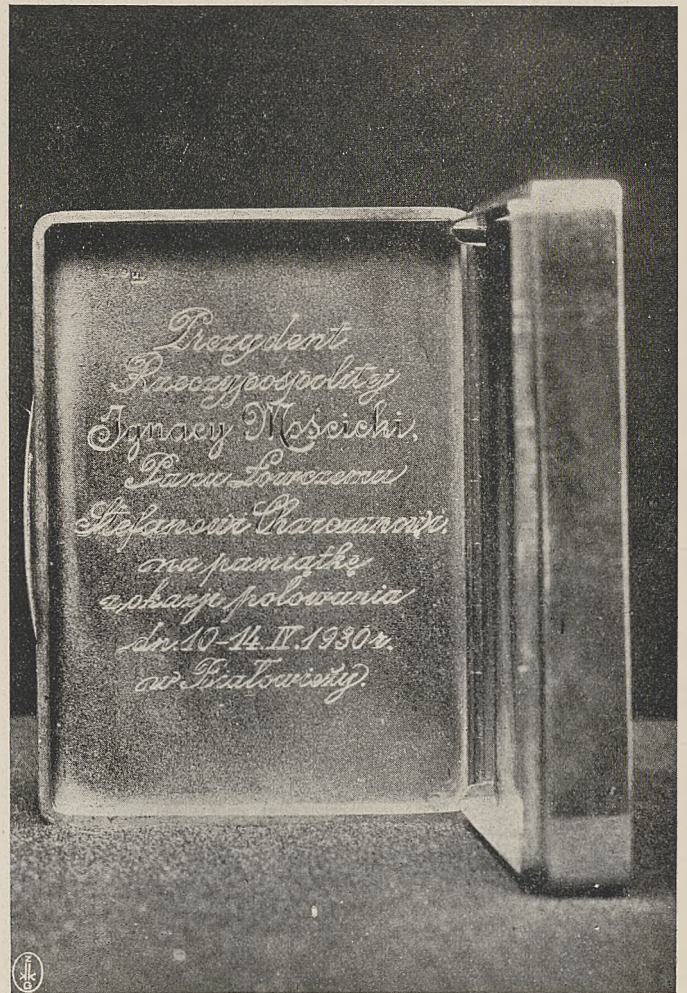 Prezydent
Rzeczypospolitej
Ignacy Mościcki,
Panu Łowczemu
Stefanowi
na pamiątkę
z okazji polowania
dn. 10-14. IV. 1930 r.
w Białowieży.